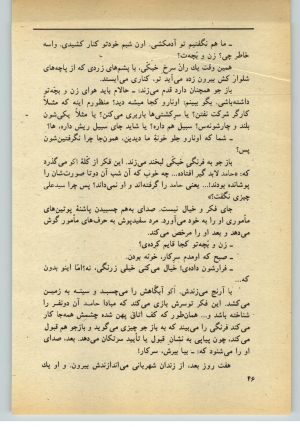 ـ ما هم نگفتیم تو آدمکشی. اون شبم خودتو کنار کشیدی. واسه
خاطر چی؟ زن و بچه‌ت؟
همین وقت یك ران سرخ خیکّی، با پشم‌های زردی که از پاچه‌های
شلوار کش بیرون زده می‌آید تو، کناری می‌ایستد.
باز جو همچنان دارد قدم می‌زند: ـ حالام باید هوای زن و بچه‌تو
داشته‌باشی. یگو ببینم: اونارو کجا میشه دید؟ منظورم اینه که مثلاً
کارگر شرکت نفتن؟ یا سرِکشتی‌ها باربری می‌کنن؟ یا مثلاً یکی‌شون
بلند و چارشونه‌س؟ سبیل هم داره؟ یا شاید جای سبیل ریش داره، ها؟
ـ شما که اونارو جلو خونهٔ ما دیدین، همون‌جا چرا نگرفتین‌شون
پس؟
باز جو به فرنگی خیکّی لبخند می‌زند. این فکر از کلهٔ اکو می‌گذرد
که: «حامد لابد گیر افتاده... چه خوب که آن شب آن دوتا صورت‌شان را
پوشانده بودند!... یعنی حامد را گرفته‌اند و او نمی‌داند؟ پس چرا سیدعلی
چیزی نگفت؟»
جای فکر و خیال نیست. صدای به‌هم چسبیدن پاشنهٔ پوتین‌های
مأموری او را به خود می‌آورد. مرد سفیدپوش به حرف‌های مأمور گوش
می‌دهد و بعد او را مرخص می‌کند.
ـ زن و بچه‌تو کجا قایم کرده‌ی؟
ـ صبح که اومدم سرِکار، خونه بودن.
ـ فرارشون داده‌ی! خیال می‌کنی خیلی زرنگی، نه؟! اما اینو بدون
که...
با آرنج می‌زندش. اکو آبگاهش را می‌چسبد و سینه به زمین
می‌کشد. این فکر توسرش بازی می‌کند که مبادا حامد آن دونفر را
شناخته باشد و... همان‌طور که کف اتاق پهن شده چشمش همه‌جا کار
می‌کند فرنگی را می‌بیند که به باز جو چیزی می‌گوید و بازجو هم قبول
می‌کند، چون پیاپی به نشانِ قبول یا تأیید سرتکان می‌دهد. بعد، صدای
او را می‌شنود که: ـ بیا ببرش، سرکار!
هفت روز بعد، از زندان شهربانی می‌اندازندش بیرون. و او یك
۴۶